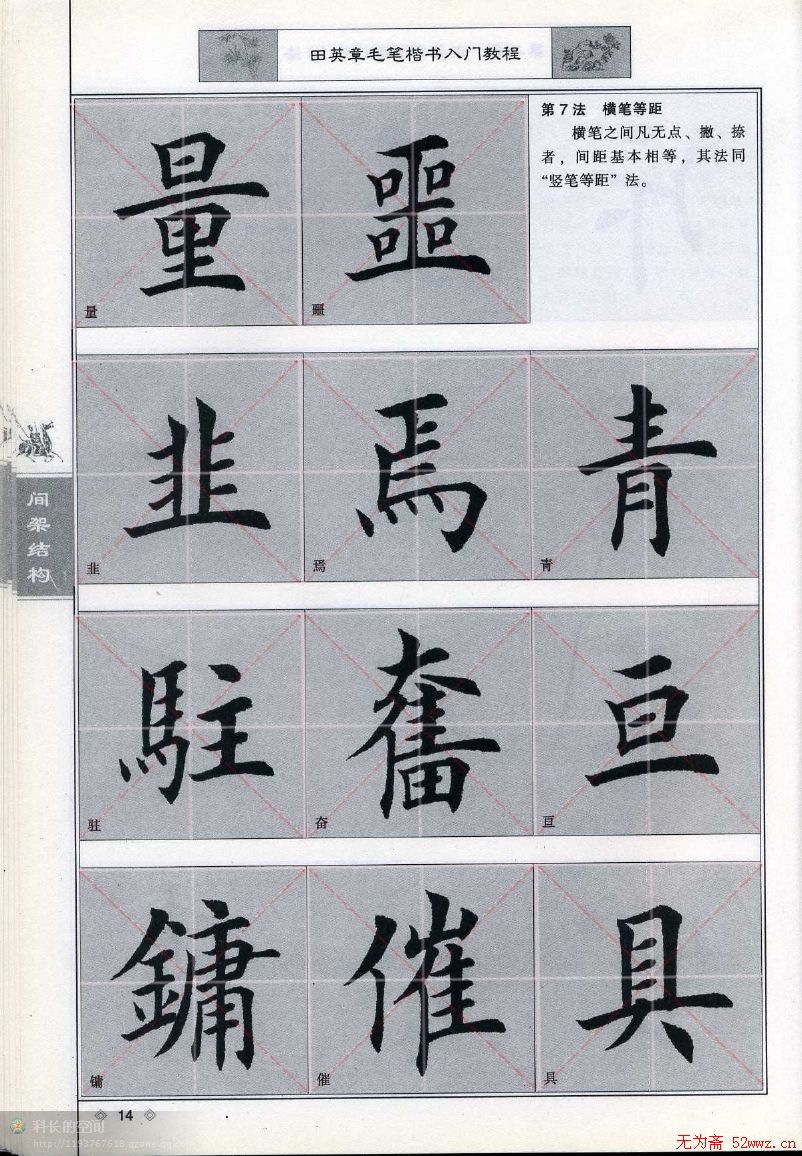 田英章毛笔楷书入门教程
第7法 横笔等距
横笔之间凡无点、撇、捺
者，间距基本相等，其法同
“竖笔等距”法。
量 噩
量 噩
韭 焉 青
韭 焉 青
間架结构
駐 奮 亘
驻 奋 亘
鏞 催 具
镛 催 具
14
科长的空间
http://1193767618.qzone.qq.com
无为斋 52wwz.cn